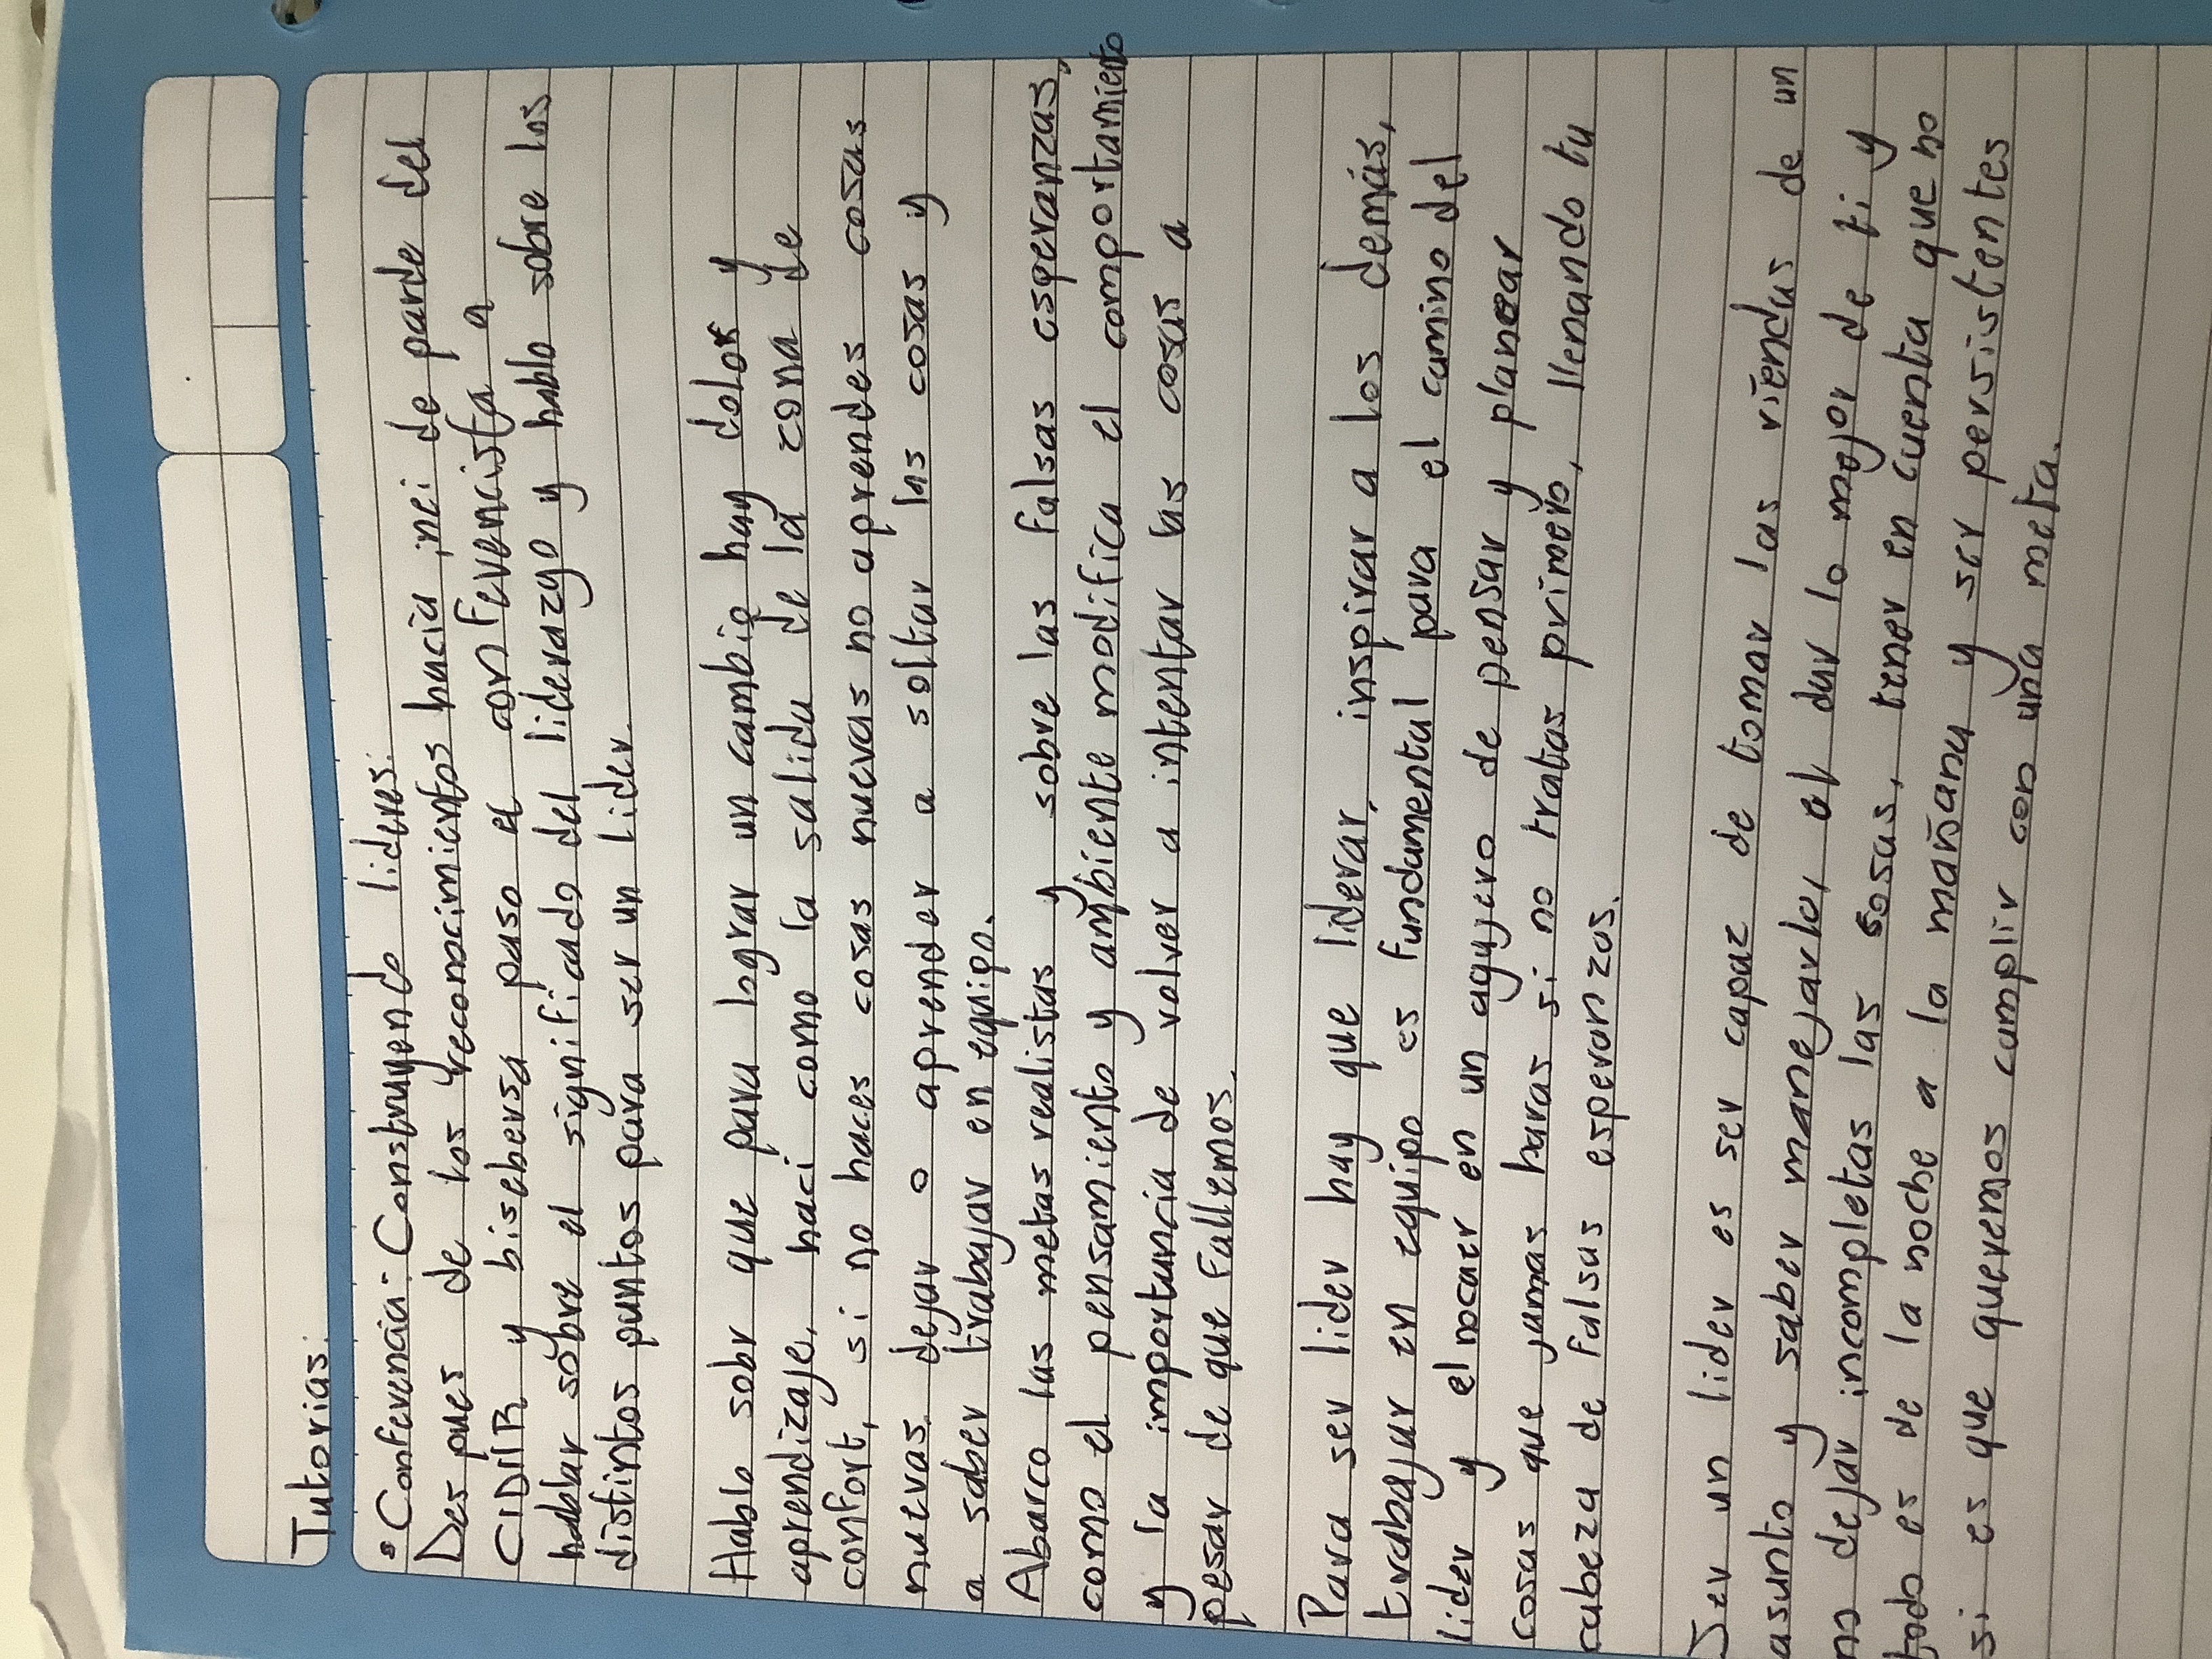 Tutorias.
• Conferencia: Construyendo lideres.
Des pues de los reconocimientos hacia inei de parde del
CIDIIR y bisebersa paso el confevencista a
hablar sobre el significado del liderazgo y hablo sobre los
distintos puntos para ser un lider.
Hablo sobr que para lograr un cambio hay dolor y
aprendizaje, haci como la salida de la zona de
confort, si no haces cosas nuevas no aprendes cosas
nuevas, dejar o aprender a soltar las cosas y
a saber trabajar en equipo.
Abarco las metas realistas y sobre las falsas esperanzas,
como el pensamiento y ambiente modifica el comportamiento
y la importancia de volver a intentar las cosas a
pesar de que fallemos.
Para ser lider hay que liderar, inspirar a los demás,
trabajar en equipo es fundamental para el camino del
lider y el nocaer en un agujero de pensar y planear
cosas que jamas haras si no tratas primero, llenando tu
cabeza de falsas esperanzas.
Ser un lider es ser capaz de tomar las riendas de un
asunto y saber manejarlo, el dar lo mejor de ti y
no dejar incompletas las sosas, tener en cuenta que no
todo es de la noche a la mañana y ser persistentes
si es que queremos cumplir con una meta.